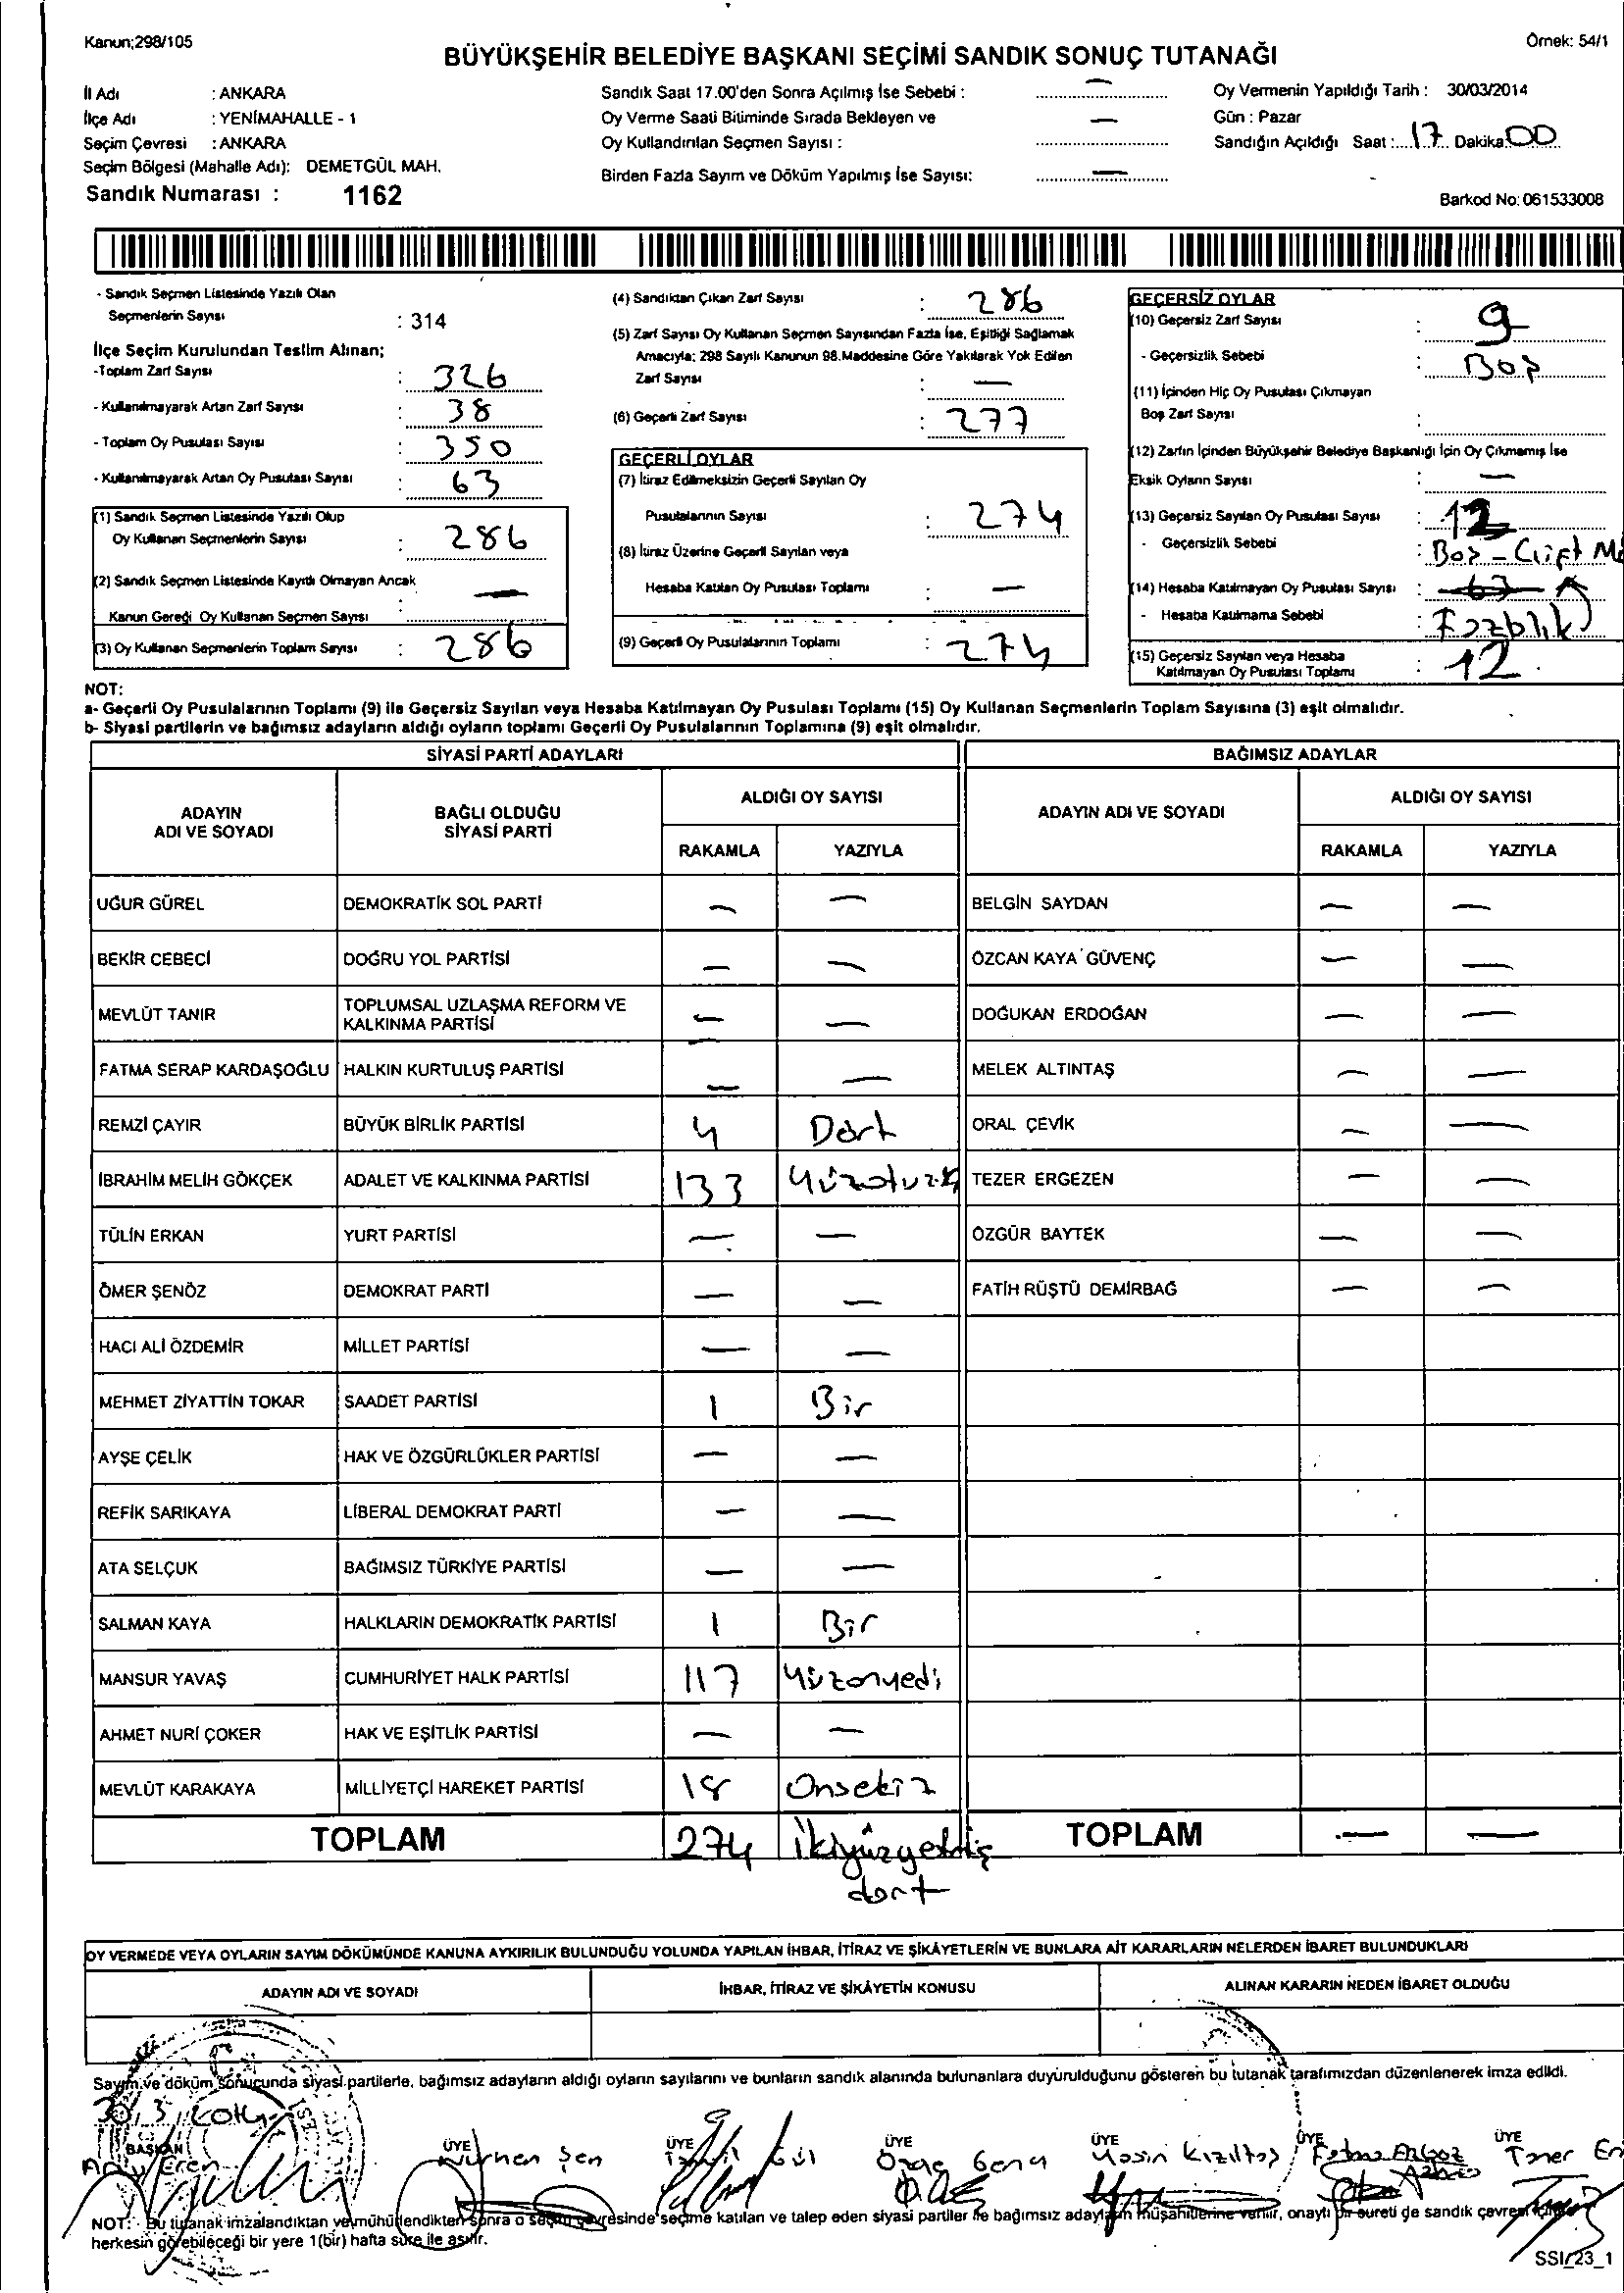 Kanun;298/105
Örnek: 54/1
BÜYÜKŞEHİR BELEDİYE BAŞKANI SEÇİMİ SANDIK SONUÇ TUTANAĞI
İl Adı : ANKARA
İlçe Adı : YENİMAHALLE - 1
Seçim Çevresi : ANKARA
Seçim Bölgesi (Mahalle Adı): DEMETGÜL MAH.
Sandık Numarası : 1162
Sandık Saat 17.00'den Sonra Açılmış İse Sebebi : —
Oy Verme Saati Bitiminde Sırada Bekleyen ve
Oy Kullandırılan Seçmen Sayısı : —
Birden Fazla Sayım ve Döküm Yapılmış İse Sayısı: —
Oy Vermenin Yapıldığı Tarih : 30/03/2014
Gün : Pazar
Sandığın Açıldığı Saat : 17 Dakika: 00
Barkod No: 061533008
- Sandık Seçmen Listesinde Yazılı Olan
Seçmenlerin Sayısı : 314
İlçe Seçim Kurulundan Teslim Alınan;
-Toplam Zarf Sayısı : 326
- Kullanılmayarak Artan Zarf Sayısı : 38
- Toplam Oy Pusulası Sayısı : 350
- Kullanılmayarak Artan Oy Pusulası Sayısı : 63
(1) Sandık Seçmen Listesinde Yazılı Olup
Oy Kullanan Seçmenlerin Sayısı : 286
(2) Sandık Seçmen Listesinde Kayıtlı Olmayan Ancak
Kanun Gereği Oy Kullanan Seçmen Sayısı : —
(3) Oy Kullanan Seçmenlerin Toplam Sayısı : 286
(4) Sandıktan Çıkan Zarf Sayısı : 286
(5) Zarf Sayısı Oy Kullanan Seçmen Sayısından Fazla İse, Eşitliği Sağlamak
Amacıyla; 298 Sayılı Kanunun 98.Maddesine Göre Yakılarak Yok Edilen
Zarf Sayısı : —
(6) Geçerli Zarf Sayısı : 277
GEÇERLİ OYLAR
(7) İtiraz Edilmeksizin Geçerli Sayılan Oy
Pusulalarının Sayısı : 274
(8) İtiraz Üzerine Geçerli Sayılan veya
Hesaba Katılan Oy Pusulası Toplamı : —
(9) Geçerli Oy Pusulalarının Toplamı : 274
GEÇERSİZ OYLAR
(10) Geçersiz Zarf Sayısı : 9
- Geçersizlik Sebebi : Boş
(11) İçinden Hiç Oy Pusulası Çıkmayan
Boş Zarf Sayısı :
(12) Zarfın İçinden Büyükşehir Belediye Başkanlığı İçin Oy Çıkmamış İse
Eksik Oyların Sayısı : —
(13) Geçersiz Sayılan Oy Pusulası Sayısı : 12
- Geçersizlik Sebebi : Boş - Çift
(14) Hesaba Katılmayan Oy Pusulası Sayısı : 63
- Hesaba Katılmama Sebebi : Fazlalık
(15) Geçersiz Sayılan veya Hesaba
Katılmayan Oy Pusulası Toplamı : 12
NOT:
a- Geçerli Oy Pusulalarının Toplamı (9) ile Geçersiz Sayılan veya Hesaba Katılmayan Oy Pusulası Toplamı (15) Oy Kullanan Seçmenlerin Toplam Sayısına (3) eşit olmalıdır.
b- Siyasi partilerin ve bağımsız adayların aldığı oyların toplamı Geçerli Oy Pusulalarının Toplamına (9) eşit olmalıdır.
SİYASİ PARTİ ADAYLARI BAĞIMSIZ ADAYLAR
ADAYIN ADI VE SOYADI BAĞLI OLDUĞU SİYASİ PARTİ ALDIĞI OY SAYISI ADAYIN ADI VE SOYADI ALDIĞI OY SAYISI
RAKAMLA YAZIYLA RAKAMLA YAZIYLA
UĞUR GÜREL DEMOKRATİK SOL PARTİ — — BELGİN SAYDAN — —
BEKİR CEBECİ DOĞRU YOL PARTİSİ — — ÖZCAN KAYA GÜVENÇ — —
MEVLÜT TANIR TOPLUMSAL UZLAŞMA REFORM VE KALKINMA PARTİSİ — — DOĞUKAN ERDOĞAN — —
FATMA SERAP KARDAŞOĞLU HALKIN KURTULUŞ PARTİSİ — — MELEK ALTINTAŞ — —
REMZİ ÇAYIR BÜYÜK BİRLİK PARTİSİ 4 Dört ORAL ÇEVİK — —
İBRAHİM MELİH GÖKÇEK ADALET VE KALKINMA PARTİSİ 133 TEZER ERGEZEN — —
TÜLİN ERKAN YURT PARTİSİ — — ÖZGÜR BAYTEK — —
ÖMER ŞENÖZ DEMOKRAT PARTİ — — FATİH RÜŞTÜ DEMİRBAĞ — —
HACI ALİ ÖZDEMİR MİLLET PARTİSİ — —
MEHMET ZİYATTİN TOKAR SAADET PARTİSİ 1 Bir
AYŞE ÇELİK HAK VE ÖZGÜRLÜKLER PARTİSİ — —
REFİK SARIKAYA LİBERAL DEMOKRAT PARTİ — —
ATA SELÇUK BAĞIMSIZ TÜRKİYE PARTİSİ — —
SALMAN KAYA HALKLARIN DEMOKRATİK PARTİSİ 1 Bir
MANSUR YAVAŞ CUMHURİYET HALK PARTİSİ 117 Yüzonyedi
AHMET NURİ ÇOKER HAK VE EŞİTLİK PARTİSİ — —
MEVLÜT KARAKAYA MİLLİYETÇİ HAREKET PARTİSİ 18 Onsekiz
TOPLAM 274 İkiyüzyetmiş dört TOPLAM — —
OY VERMEDE VEYA OYLARIN SAYIM DÖKÜMÜNDE KANUNA AYKIRILIK BULUNDUĞU YOLUNDA YAPILAN İHBAR, İTİRAZ VE ŞİKÂYETLERİN VE BUNLARA AİT KARARLARIN NELERDEN İBARET BULUNDUKLARI
ADAYIN ADI VE SOYADI İHBAR, İTİRAZ VE ŞİKÂYETİN KONUSU ALINAN KARARIN NEDEN İBARET OLDUĞU
Sayım ve döküm sonucunda siyasi partilerle, bağımsız adayların aldığı oyların sayılarını ve bunların sandık alanında bulunanlara duyurulduğunu gösteren bu tutanak tarafımızdan düzenlenerek imza edildi.
30/3/2014
BAŞKAN ÜYE ÜYE ÜYE ÜYE ÜYE ÜYE
Eren Nurhan Şen Gül Yasin Kızıltaş Fatma Taner
NOT: Bu tutanak imzalandıktan ve mühürlendikten sonra o seçim çevresinde seçime katılan ve talep eden siyasi partiler ile bağımsız adayların müşahitlerine verilir, onaylı bir sureti de sandık çevresi içinde
herkesin görebileceği bir yere 1(bir) hafta süre ile asılır.
SSI_23_1